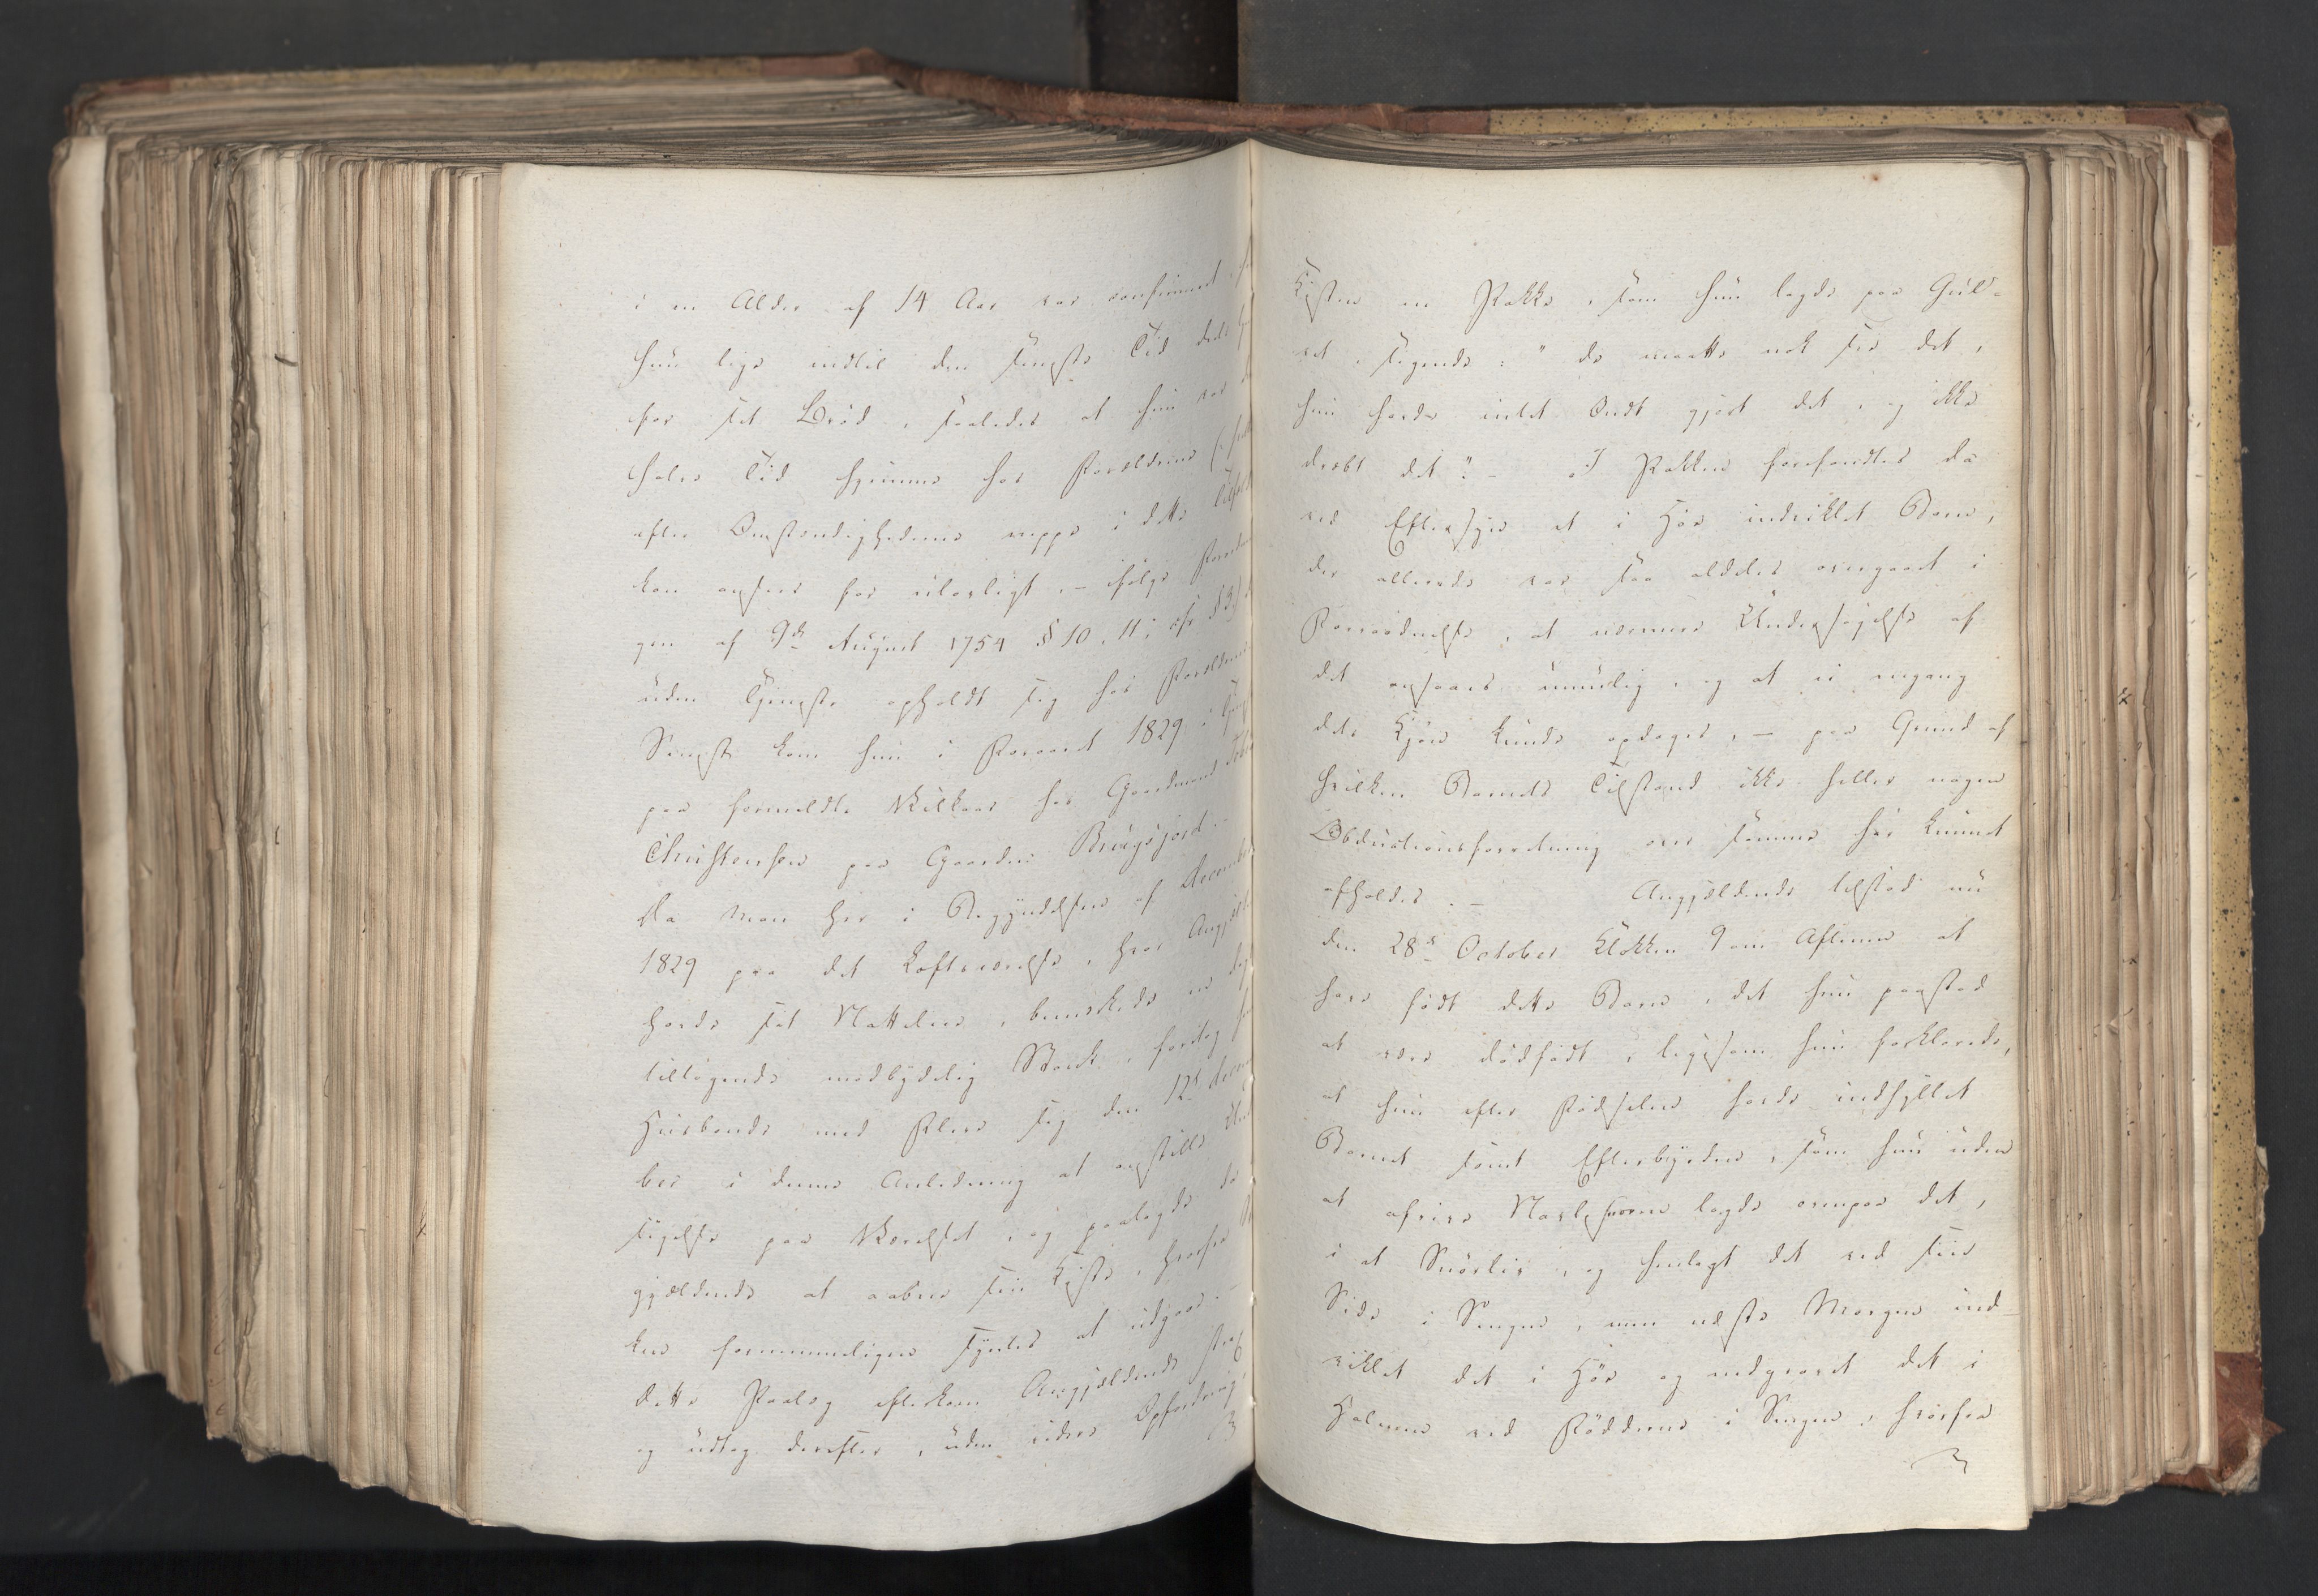 i en Alder af 14 Aar var confirmeret,
hun lige indtil den seneste Tid
for sit Brød, saaledes at hun var
halve Tid hjemme hos Forældrene
efter Omstændighederne neppe i dette
kan ansees for ulovligt, – ifølge
gen af 9de August 1754 § 10, 11;
uden Tjeneste opholdt sig hos Forældrene
Senest kom hun i Foraaret 1829 i
paa formeldte Vilkaar hos Gaardmand
Christensen paa Gaarden Bringsjord. –
Da man her i Begyndelsen af December
1829 paa det Loftsværelse, hvor
havde sit Natteleie, bemærkede en
tiltagende modbydelig Stank, foretog
Huusbonde med Flere sig den 12te
ber i denne Anledning at anstille
søgelse paa Værelset, og paalagde
gjældende at aabne sin Kiste, hvorfra
ken formeentligen syntes at udgaae. –
dette Paalæg efterkom Angjældende strax
og udtog derefter, uden videre Opfordring,
Kisten en Pakke, som hun lagde paa Gul-
vet, sigende: "de maatte nok see det,
hun havde intet Ondt gjort det, og ikke
dræbt det". – I Pakken forefandtes da
ved Eftersyn et i Hør indviklet Barn,
der allerede var saa aldeles overgaaet i
Forraadnelse, at nærmere Undersøgelse af
det ansaaes umulig, og at ei engang
dets Kjøn kunde opdages, – paa Grund af
hvilken Barnets Tilstand ikke heller nogen
Obductionsforretning over samme har kunnet
afholdes. – Angjældende tilstod nu
den 28de October Klokken 9 om Aftenen at
have født dette Barn, det hun paastod
at være dødfødt, ligesom hun forklarede,
at hun efter Fødselen havde indhyllet
Barnet samt Efterbyrden, som hun uden
at afrive Navlesnoren lagde ovenpaa det,
i et Snørliv, og henlagt det ved sin
Side i Sengen, men næste Morgen ind-
viklet det i Hør og nedgravet det i
Halmen ved Fødderne i Sengen, hvorfra